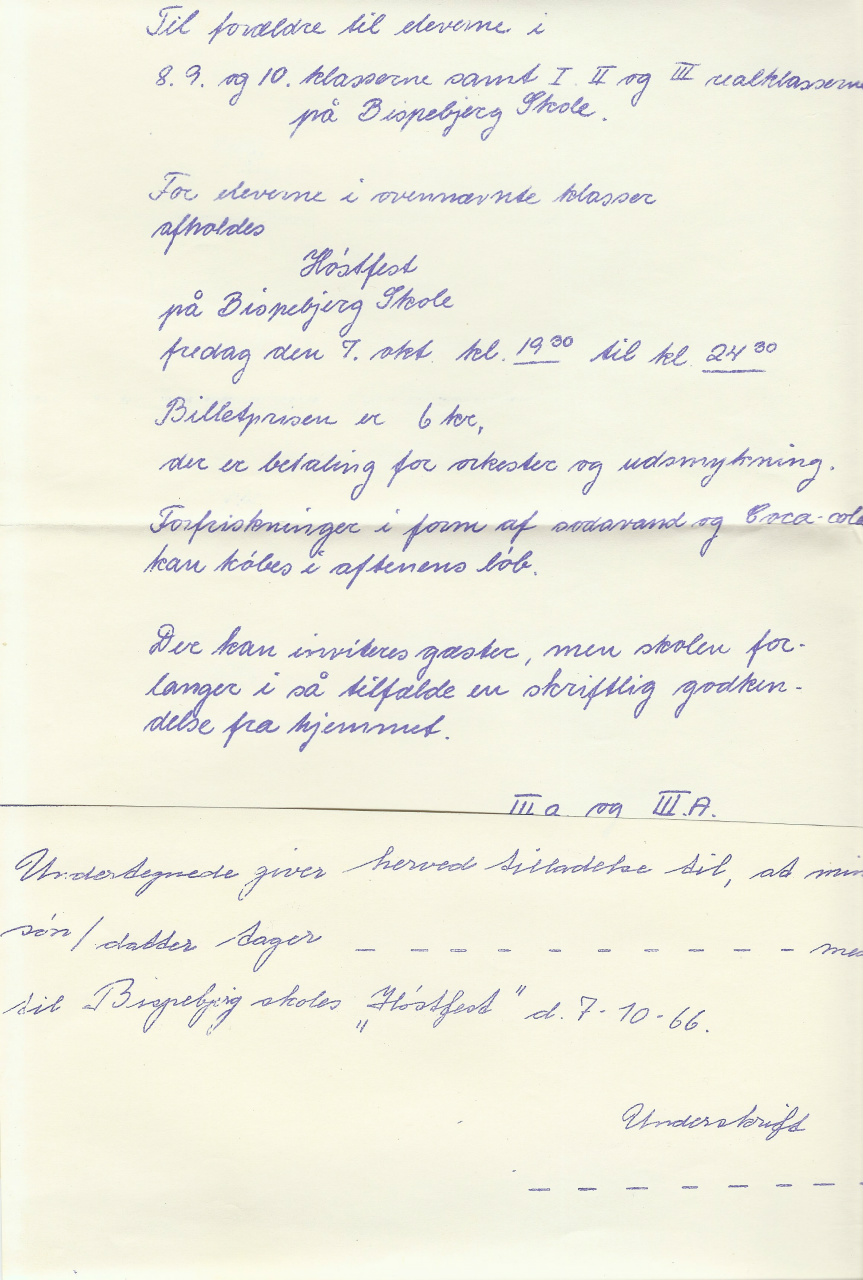 Til forældre til eleverne i
8. 9. og 10. klasserne samt I II og III realklasserne
på Bispebjerg Skole.
For eleverne i ovennævnte klasser
afholdes
Høstfest
på Bispebjerg Skole
fredag den 7. okt. kl. 19 30 til kl. 24 30
Billetprisen er 6 kr,
der er betaling for orkester og udsmykning.
Forfriskninger i form af sodavand og Coca-cola
kan købes i aftenens løb.
Der kan inviteres gæster, men skolen for-
langer i så tilfælde en skriftlig godken-
delse fra hjemmet.
III a og III.A.
Undertegnede giver herved tilladelse til, at min
søn/datter tager _ _ _ _ _ _ _ _ _ _ _ _ med
til Bispebjerg skoles „Høstfest" d. 7-10-66.
Underskrift
_ _ _ _ _ _ _